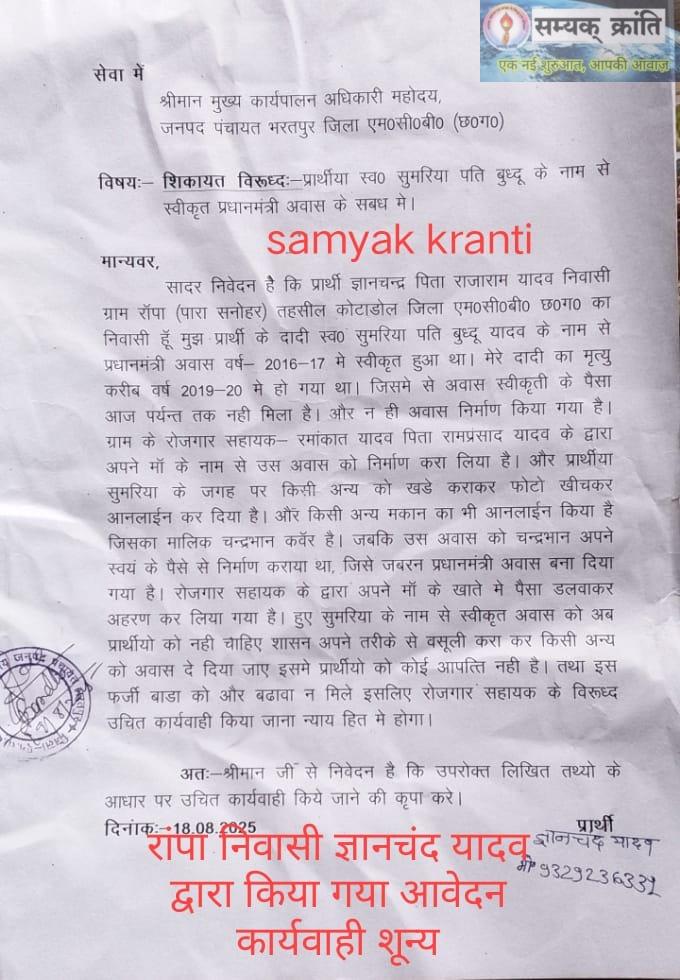 सम्यक् क्रांति
एक नई शुरुआत, आपकी आवाज़
सेवा में
श्रीमान मुख्य कार्यपालन अधिकारी महोदय,
जनपद पंचायत भरतपुर जिला एम०सी०बी० (छ०ग०)
विषयः– शिकायत विरूध्दः–प्रार्थीया स्व० सुमरिया पति बुध्दू के नाम से
स्वीकृत प्रधानमंत्री अवास के सबध मे।
samyak kranti
मान्यवर,
सादर निवेदन है कि प्रार्थी ज्ञानचन्द्र पिता राजाराम यादव निवासी
ग्राम रॉपा (पारा सनोहर) तहसील कोटाडोल जिला एम०सी०बी० छ०ग० का
निवासी हूँ मुझ प्रार्थी के दादी स्व० सुमरिया पति बुध्दू यादव के नाम से
प्रधानमंत्री अवास वर्ष– 2016–17 मे स्वीकृत हुआ था। मेरे दादी का मृत्यु
करीब वर्ष 2019–20 मे हो गया था। जिसमे से अवास स्वीकृती के पैसा
आज पर्यन्त तक नही मिला है। और न ही अवास निर्माण किया गया है।
ग्राम के रोजगार सहायक– रमांकात यादव पिता रामप्रसाद यादव के द्वारा
अपने मॉ के नाम से उस अवास को निर्माण करा लिया है। और प्रार्थीया
सुमरिया के जगह पर किसी अन्य को खडे कराकर फोटो खीचकर
आनलाईन कर दिया है। और किसी अन्य मकान का भी आनलाईन किया है
जिसका मालिक चन्द्रभान कवॅर है। जबकि उस अवास को चन्द्रभान अपने
स्वयं के पैसे से निर्माण कराया था, जिसे जबरन प्रधानमंत्री अवास बना दिया
गया है। रोजगार सहायक के द्वारा अपने मॉ के खाते मे पैसा डलवाकर
अहरण कर लिया गया है। हुए सुमरिया के नाम से स्वीकृत अवास को अब
प्रार्थीयो को नही चाहिए शासन अपने तरीके से वसूली करा कर किसी अन्य
को अवास दे दिया जाए इसमे प्रार्थीयो को कोई आपत्ति नही है। तथा इस
फर्जी बाडा को और बढावा न मिले इसलिए रोजगार सहायक के विरूध्द
उचित कार्यवाही किया जाना न्याय हित मे होगा।
अतः–श्रीमान जी से निवेदन है कि उपरोक्त लिखित तथ्यो के
आधार पर उचित कार्यवाही किये जाने की कृपा करे।
दिनांकः–18.08.2025
प्रार्थी
ज्ञानचंद यादव
मो० 9329236339
रांपा निवासी ज्ञानचंद यादव
द्वारा किया गया आवेदन
कार्यवाही शून्य